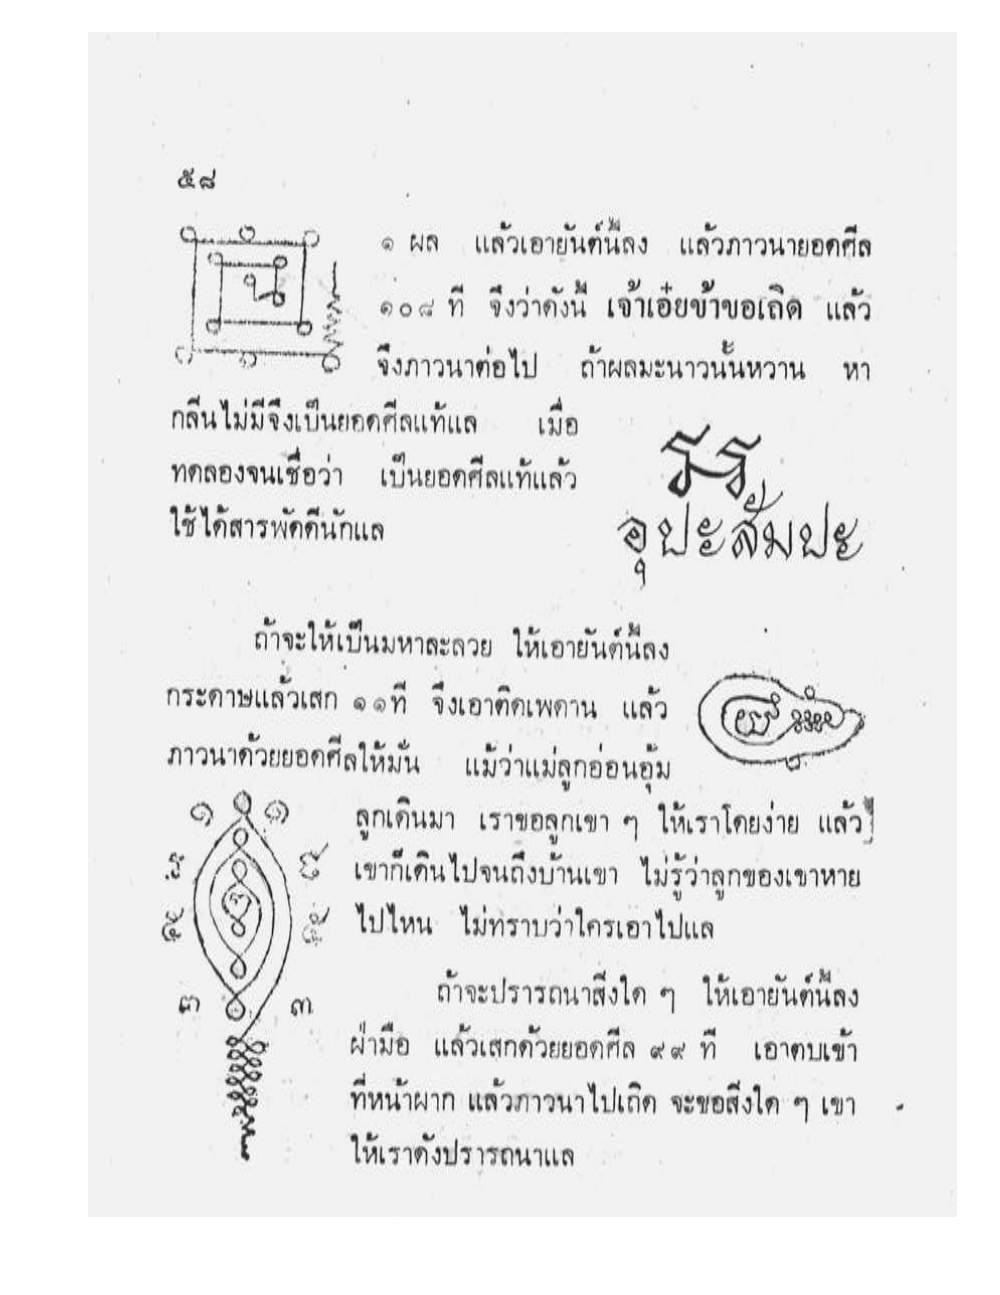 ๕๘
๑ ผล แล้วเอายันต์นี้ลง แล้วภาวนายอดศีล
๑๐๘ ที จึงว่าดังนี้ เจ้าเอ๋ยข้าขอเถิด แล้ว
จึงภาวนาต่อไป ถ้าผลมะนาวนั้นหวาน หา
น
กลีนไม่มีจึงเป็นยอดศีลแท้แล เมื่อ
ทดลองจนเชื่อว่า เป็นยอดศีลแท้แล้ว
ใช้ได้สารพัดดีนักแล
รร
อุปะสัมปะ
ถ้าจะให้เป็นมหาละลวย ให้เอายันต์นี้ลง
กระดาษแล้วเสก ๑๑ที จึงเอาติดเพดาน แล้ว
ภาวนาด้วยยอดศีลให้มั่น แม้ว่าแม่ลูกอ่อนอุ้ม
ลูกเดินมา เราขอลูกเขา ๆ ให้เราโดยง่าย แล้ว
เขาก็เดินไปจนถึงบ้านเขา ไม่รู้ว่าลูกของเขาหาย
ไปไหน ไม่ทราบว่าใครเอาไปแล
๓ ๓
ถ้าจะปรารถนาสิ่งใด ๆ ให้เอายันต์นี้ลง
ฝ่ามือ แล้วเสกด้วยยอดศีล ๙๙ ที เอาตบเข้า
ที่หน้าผาก แล้วภาวนาไปเถิด จะขอสิ่งใด ๆ เขา
ให้เราดังปรารถนาแล